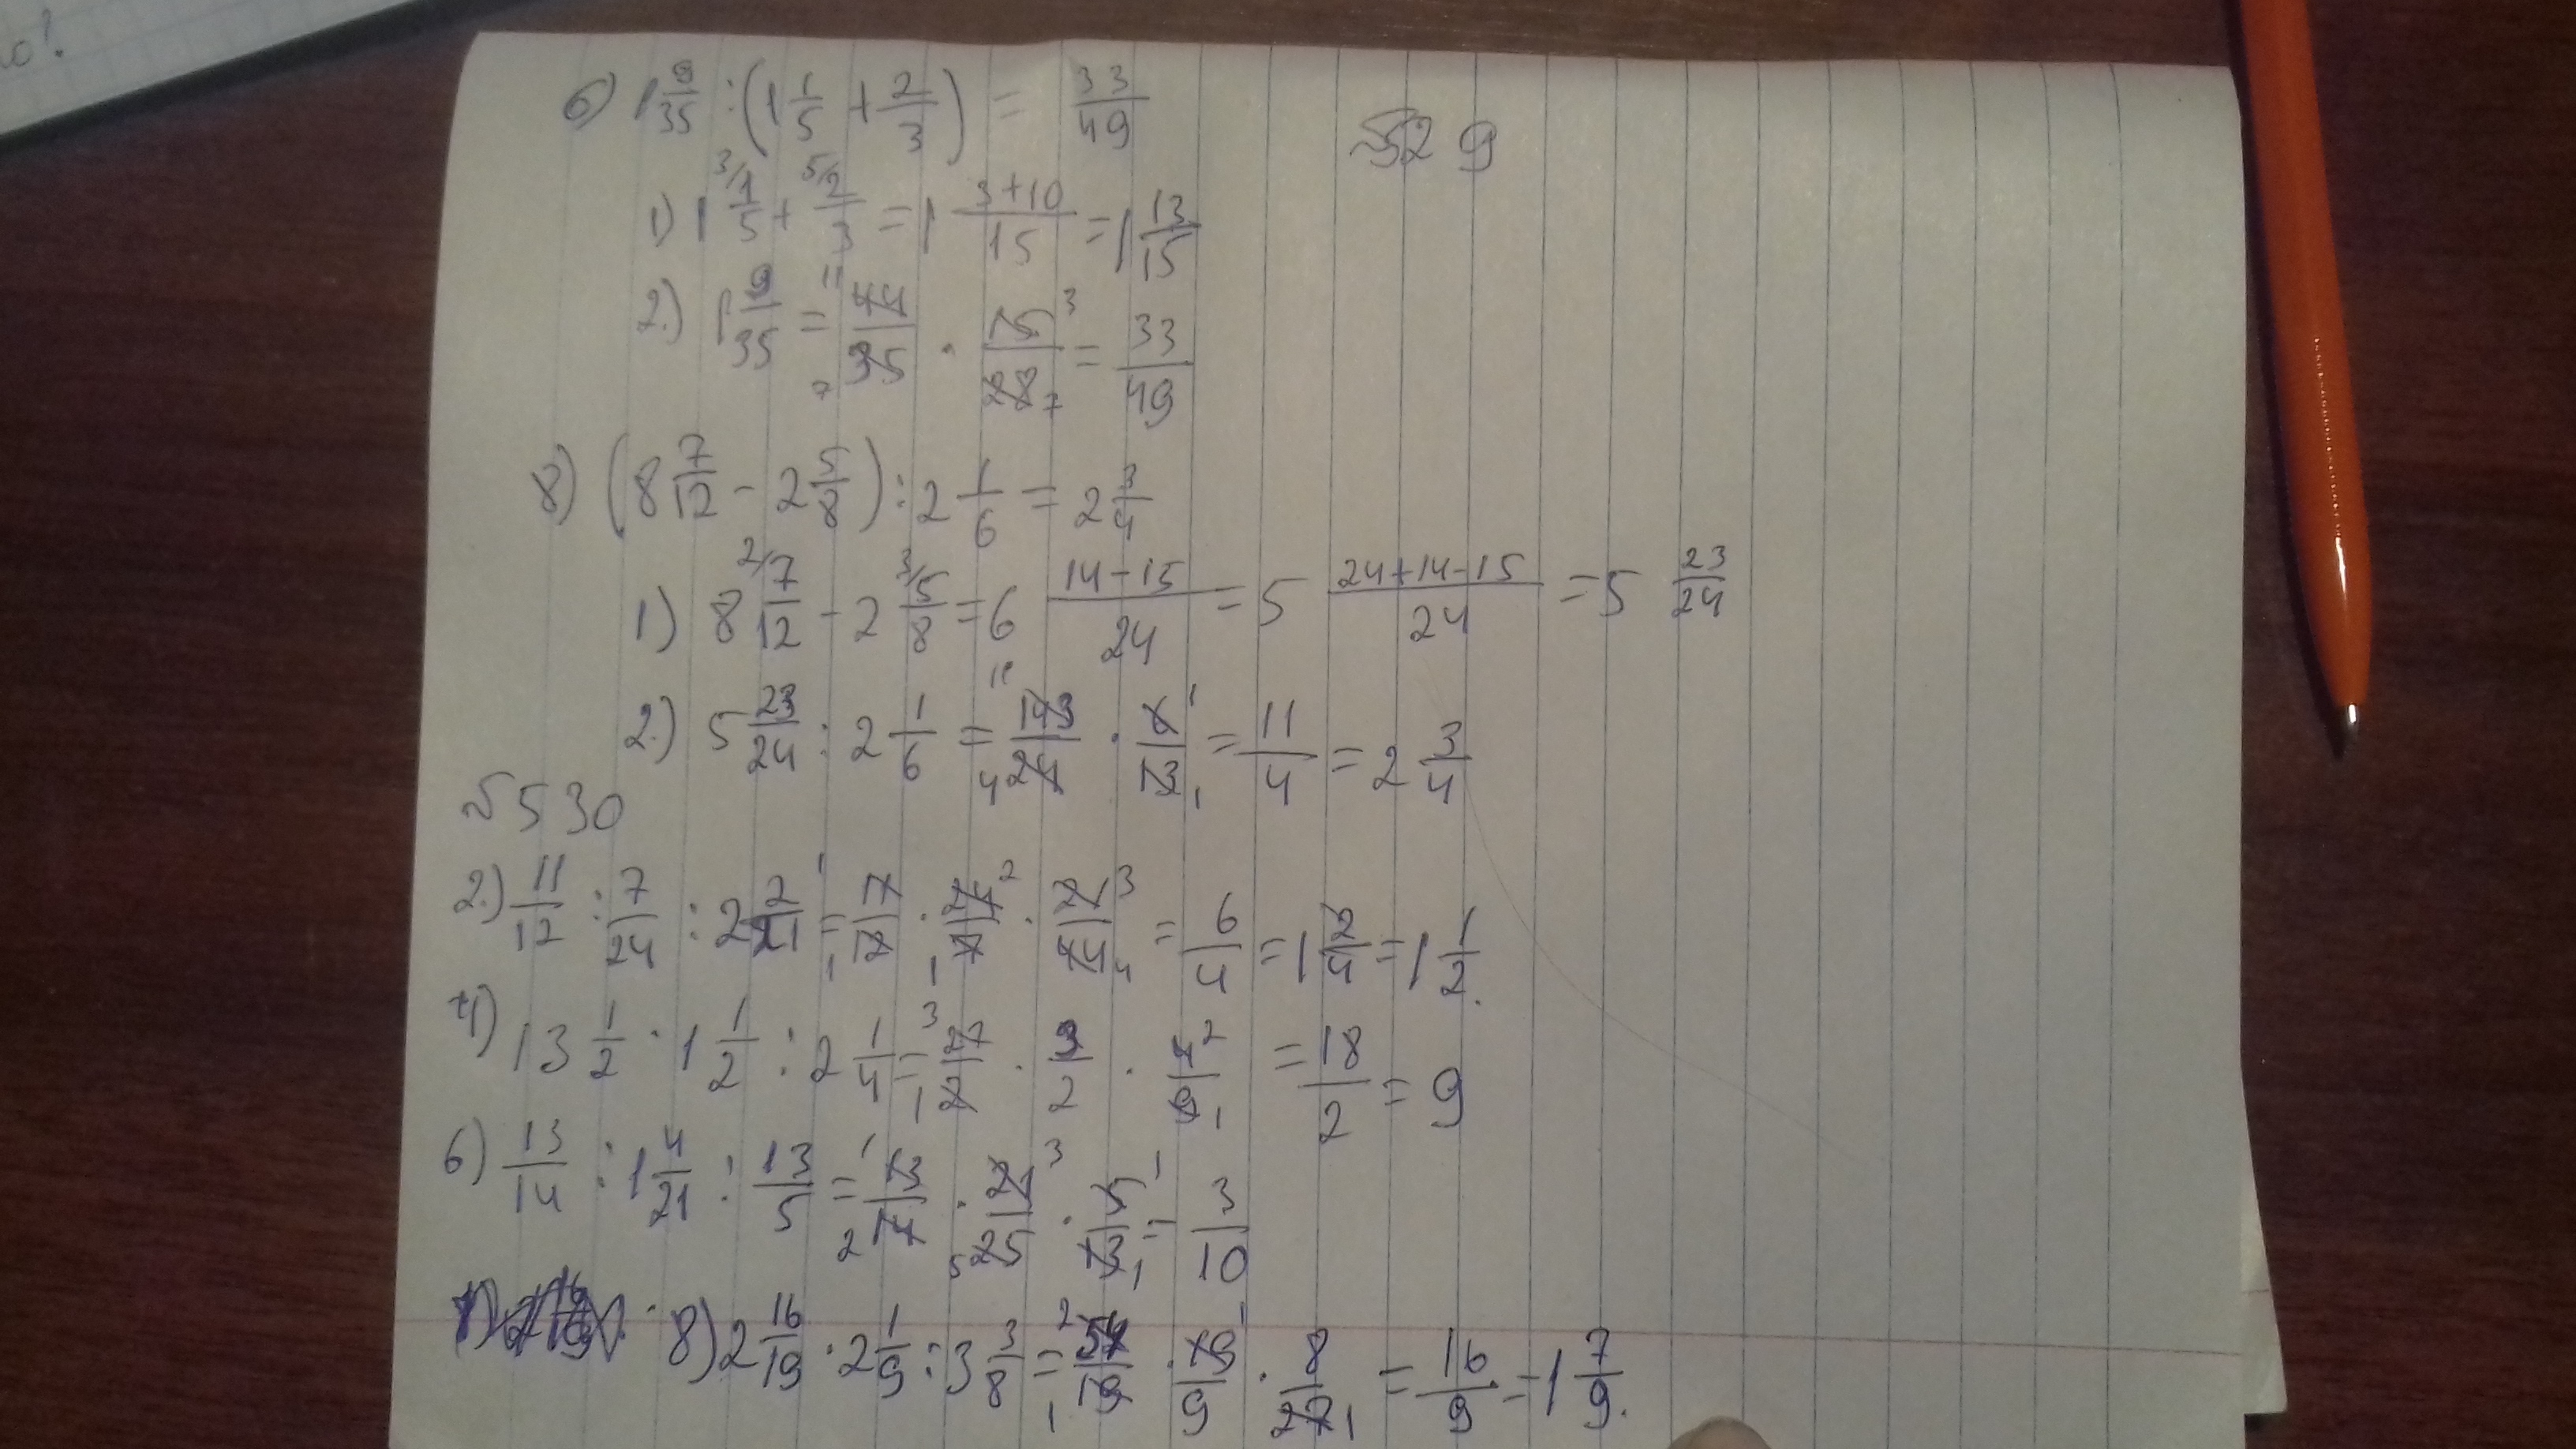 ю!.
6) 1 9/35 : (1 1/5 + 2/3) = 33/49
№529
1) 1 3/1/5 + 5/2/3 = 1 3+10/15 = 1 13/15
2.) 1 9/35 = 11 44/35 7 · 15/28 3 7 = 33/49
8) (8 7/12 - 2 5/8) : 2 1/6 = 2 3/4
1) 8 2/7/12 - 2 3/5/8 = 6 14-15/24 = 5 24+14-15/24 = 5 23/24
2.) 5 23/24 : 2 1/6 = 11 143/24 4 · 6/13 1 1 = 11/4 = 2 3/4
№530
2.) 11/12 : 7/24 : 2 2/21 = 1 17/12 1 · 24/7 2 1 · 21/44 3 4 = 6/4 = 1 2/4 = 1 1/2.
4) 13 1/2 · 1 1/2 : 2 1/4 = 3 27/2 1 · 3/2 · 4/9 2 1 = 18/2 = 9
6) 13/14 : 1 4/21 : 13/5 = 1 13/14 2 · 21/25 3 5 · 5/13 1 1 = 3/10
8) 2 16/19 · 2 1/9 : 3 3/8 = 2 54/19 1 · 19/9 1 · 8/27 1 = 16/9 = 1 7/9.